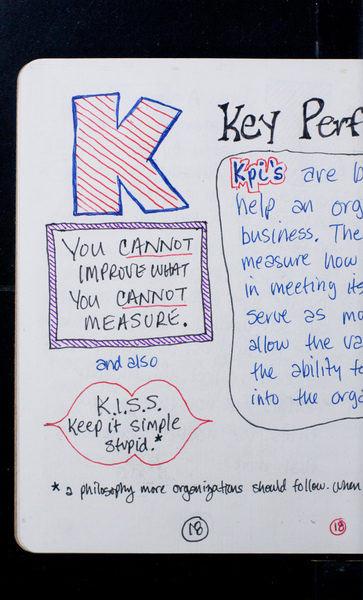 K
Key Perf
You CANNOT
IMPROVE WHAT
You CANNOT
MEASURE.
and also
K.I.S.S.
Keep it simple
stupid.*
Kpi's are
help an org
business. The
measure how
in meeting its
serve as mo
allow the va
the ability to
into the orga
* a philosophy more organizations should follow. When
18
18